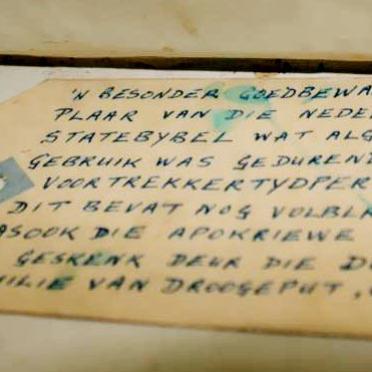 'N BESONDER GOEDBEWA
PLAAR VAN DIE NEDE
STATEBYBEL WAT ALG
GEBRUIK WAS GEDUREND
VOORTREKKERTYDPER
DIT BEVAT NOG VOLBL
ASOOK DIE APOKRIEWE
GESKENK DEUR DIE D
MILIE VAN DROOGEPUT,